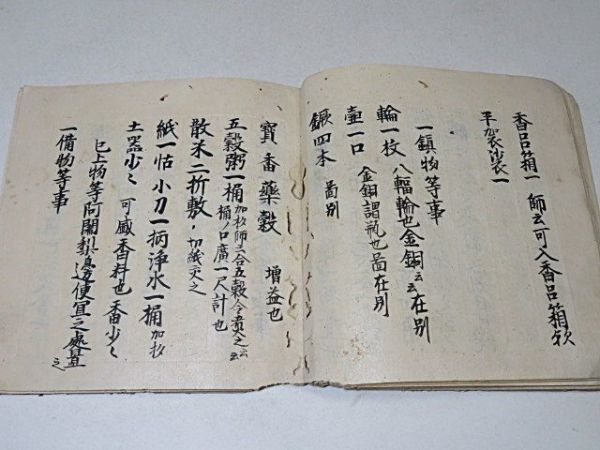 香呂箱一 師云可入香呂箱欤
平袈裟一
一鎮物等事
輪一枚 八輻輪也金銅云々在別
壷一口 金銅謂瓶也啚在別
鐝四本 啚別
寳香藥穀 増益也
五穀粥一桶 加杓師云合五穀令煮之云云
桶ノ口廣一尺計也
散米二折敷 切紙交之
紙一帖 小刀一柄 浄水一桶 加杓
土器少々 可盛香料也 香少々
已上物等阿闍梨邊便宜之處置之
一借物等事